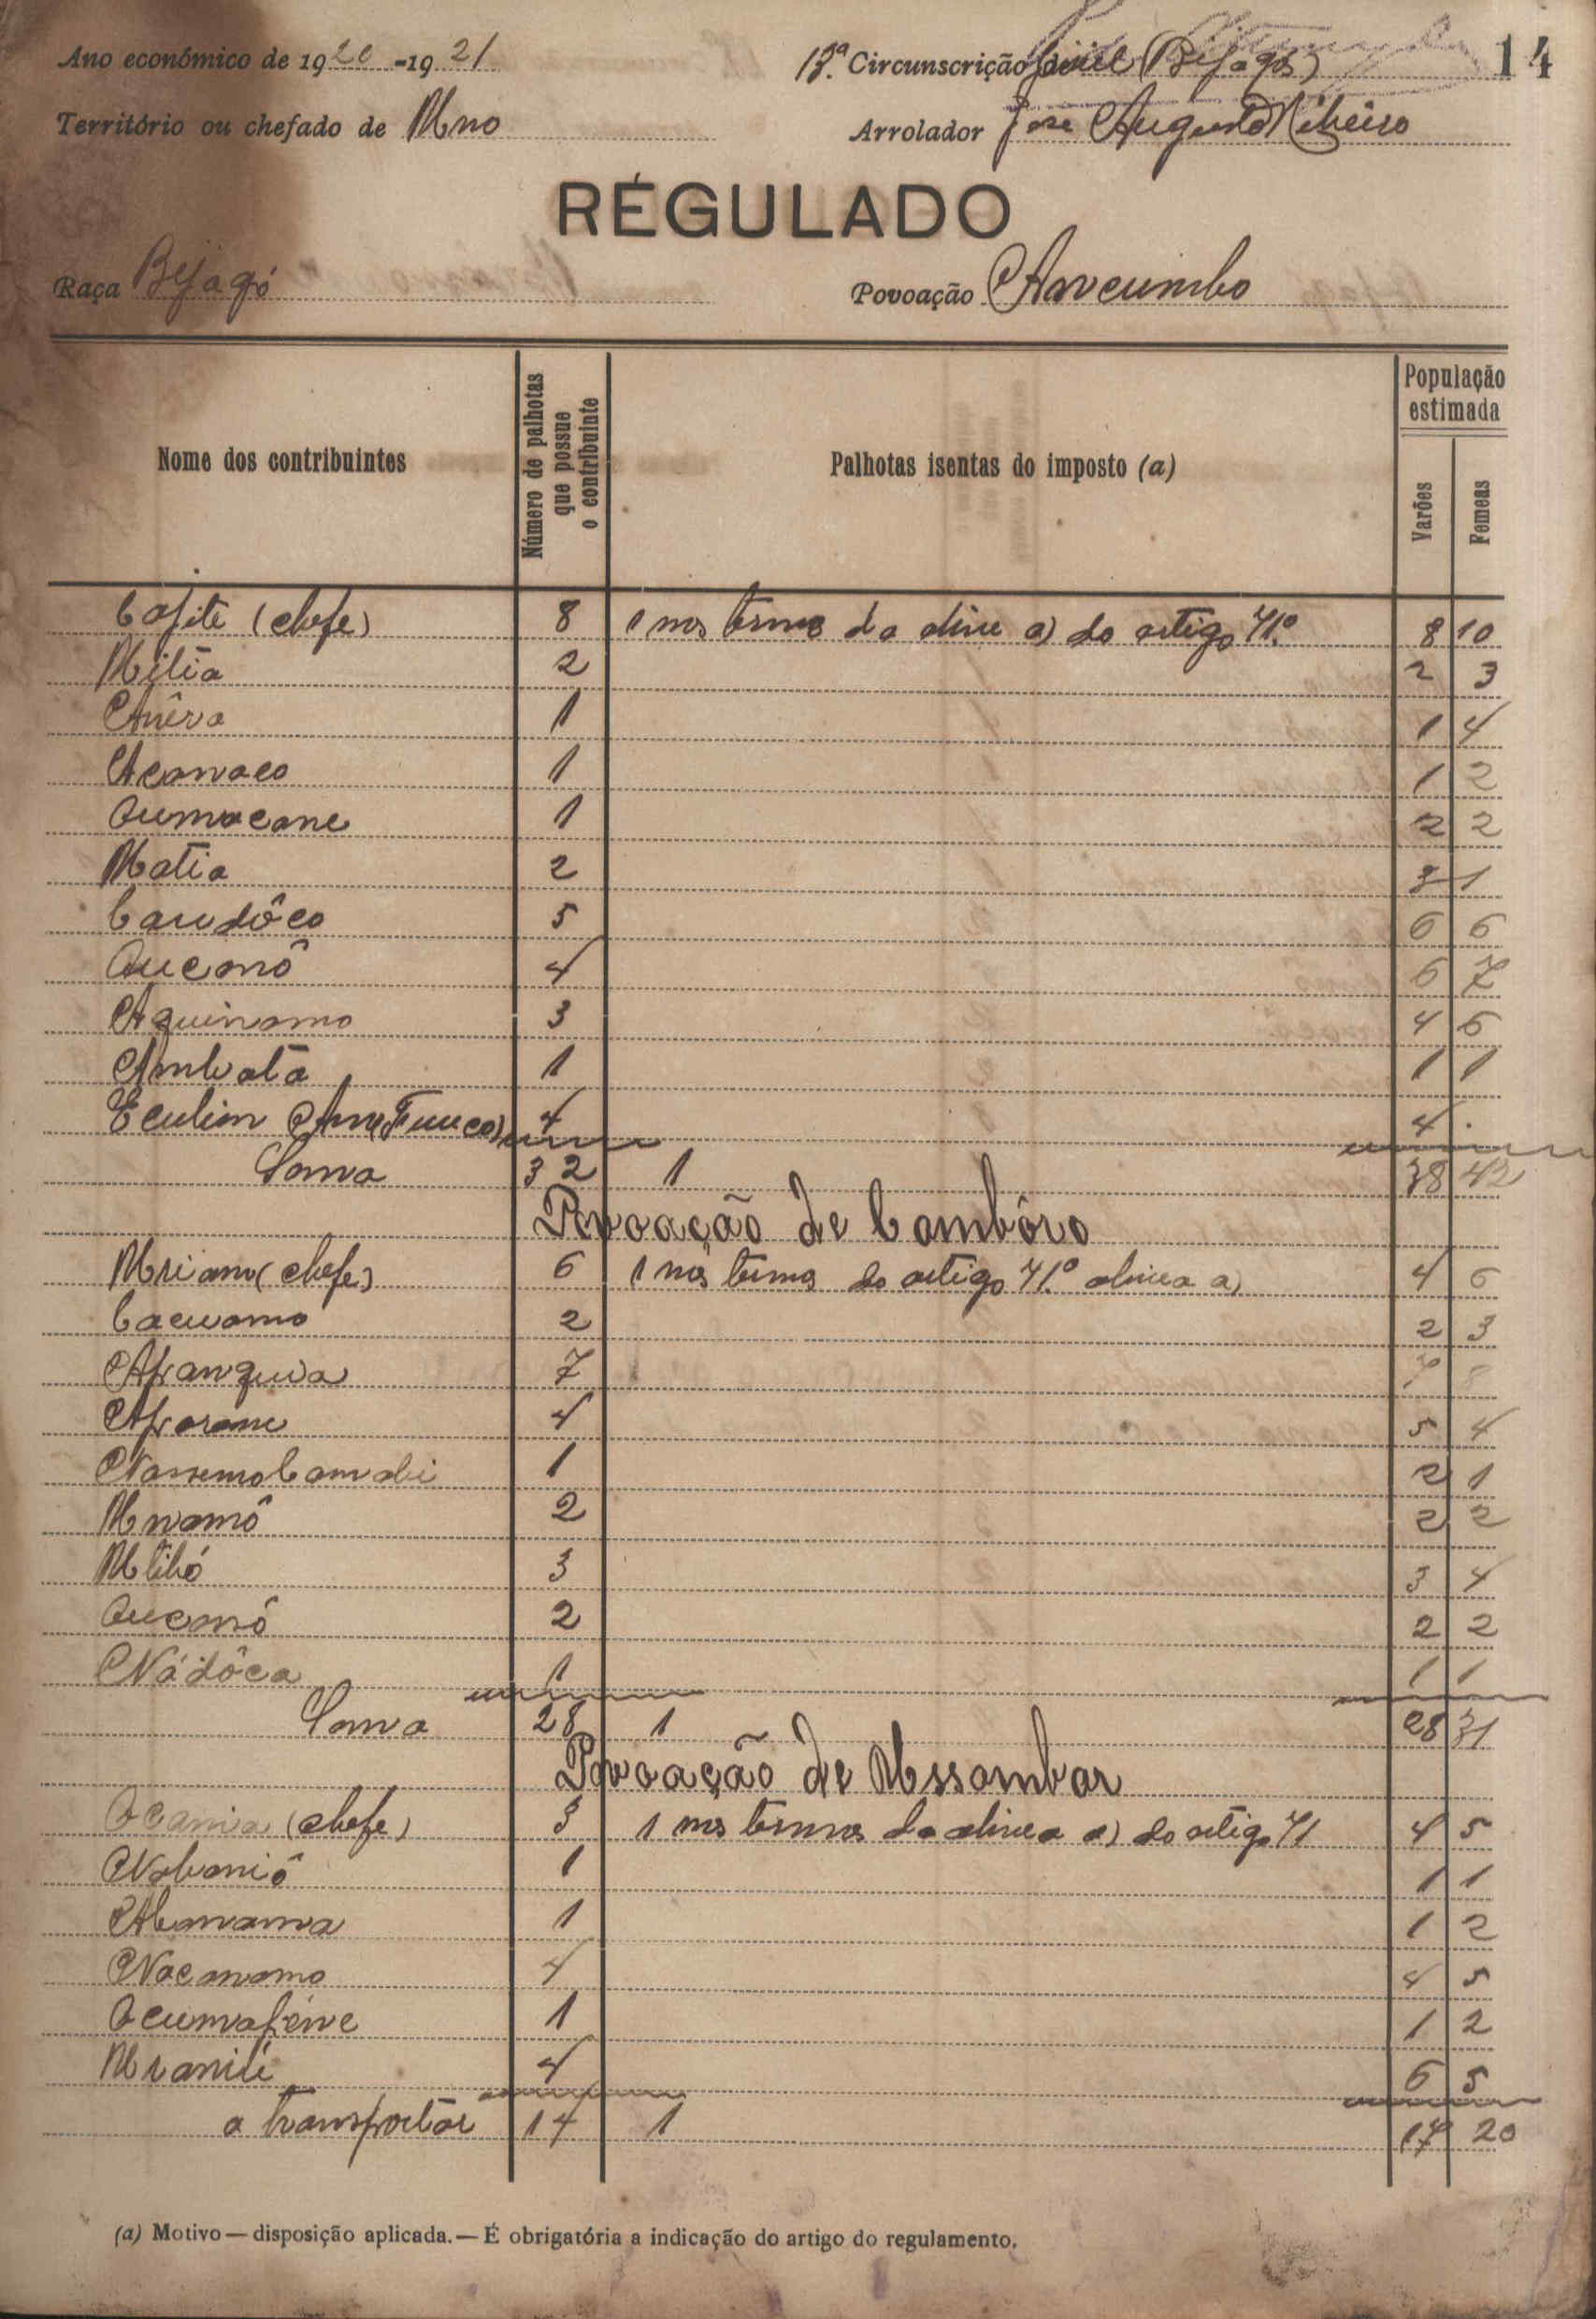 Ano económico de 1920-1921
13.ª Circunscrição Civil (Bijagós) 14
Território ou chefado de Uno
Arrolador José Augusto Ribeiro
RÉGULADO
Raça Bijagó
Povoação Ancumbo
Nome dos contribuintes
Número de palhotas que possue o contribuinte
Palhotas isentas do imposto (a)
População estimada
Varões
Femeas
Cajite (chefe) 8 1 nos termos da aline a) do artigo 41.º 8 10
Militá 2 2 3
Anêra 1 1 4
Acanaco 1 1 2
Oumacane 1 2 2
Matia 2 3 1
Carudôco 5 6 6
Oucanô 4 6 7
Aquinamo 3 4 6
Ambatá 1 1 1
Eculim 4 4
Soma 32 1 38 42
Povoação de Cambôro
(chefe) 6 1 nos termos do artigo 41.º alinea a) 4 6
Cacuamo 2 2 3
Afranquia 7 7
Afrorane 4 5 4
1 2 1
Unamô 2 2 2
Utibó 3 3 4
Oucanô 2 2 2
Nádôca 1 1 1
Soma 28 1 28 31
Povoação de Ussambar
Ocania (chefe) 3 1 nos termos da alinea a) do artigo 41 4 5
Nobaniô 1 1 1
1 1 2
Nacanamo 4 4 5
1 1 2
4 6 5
a transportar 14 1 17 20
(a) Motivo — disposição aplicada. — É obrigatória a indicação do artigo do regulamento.